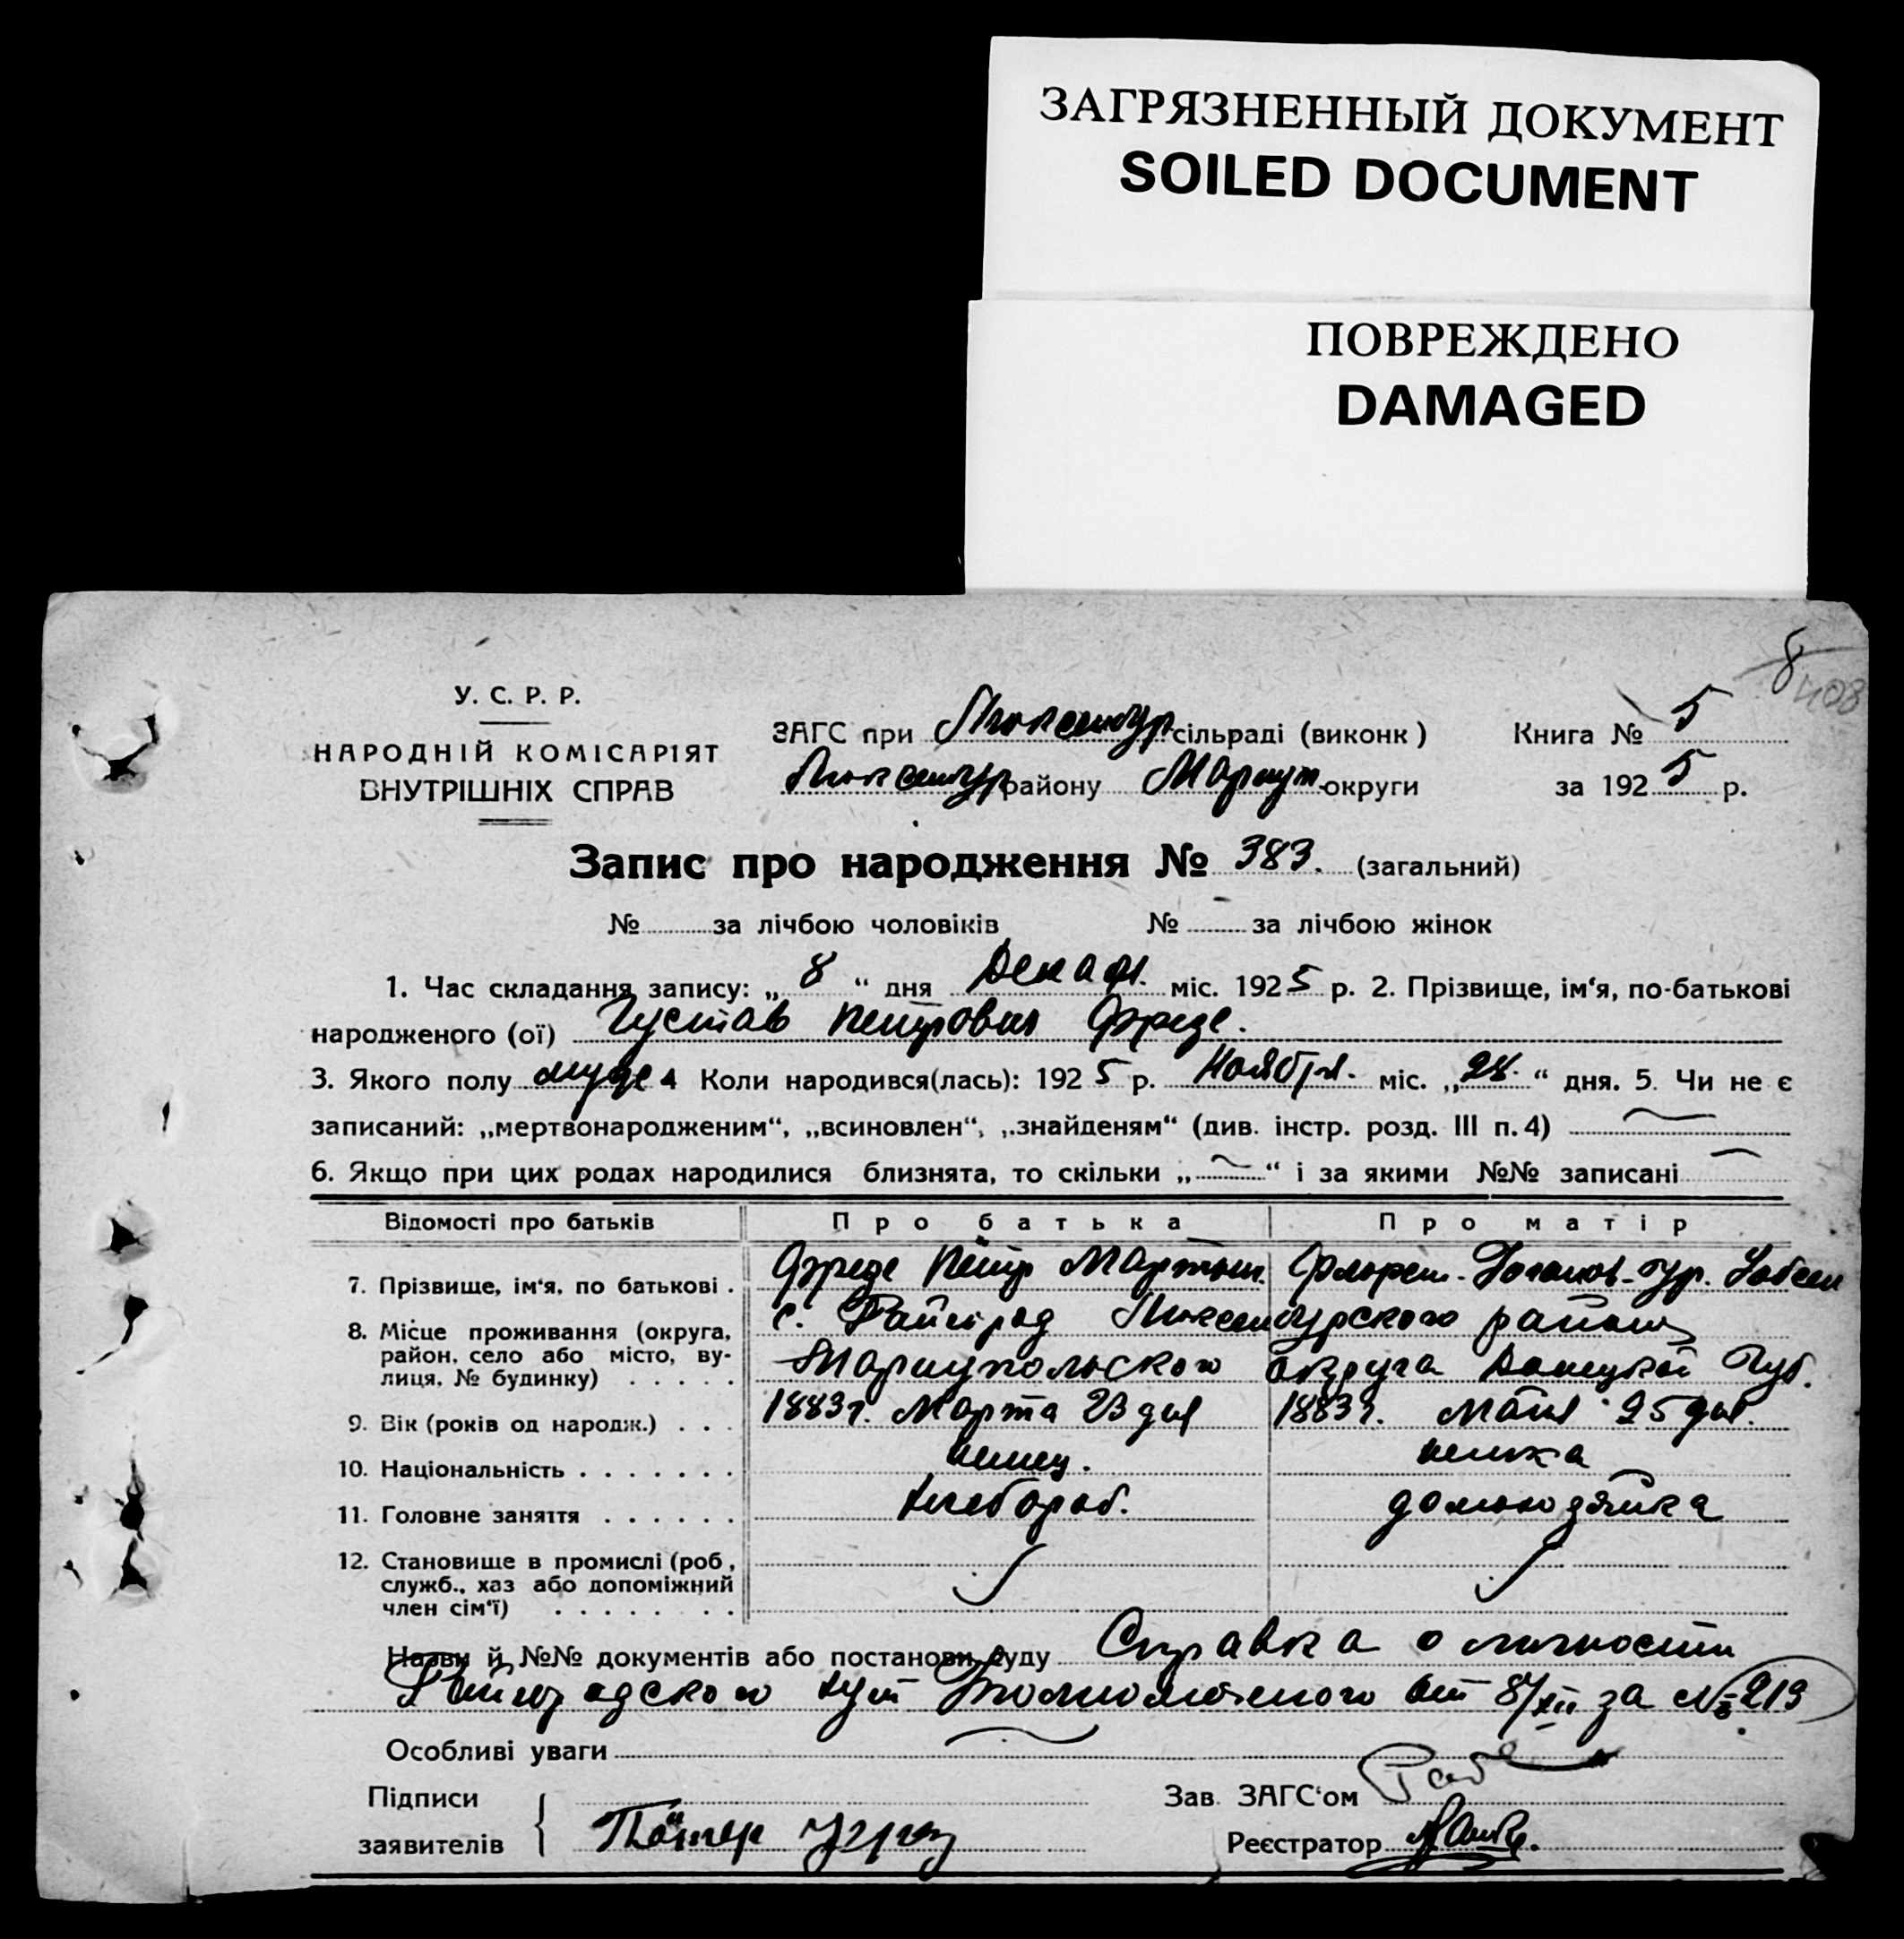 ЗАГРЯЗНЕННЫЙ ДОКУМЕНТ
SOILED DOCUMENT
ПОВРЕЖДЕНО
DAMAGED
8
408
У. С. Р. Р.
НАРОДНІЙ КОМІСАРІЯТ
ВНУТРІШНІХ СПРАВ
ЗАГС при Люксембур сільраді (виконк)
Люксембур району Мариуп. округи
Книга № 5
за 1925 р.
Запис про народження № 383. (загальний)
№ за лічбою чоловіків № за лічбою жінок
1. Час складання запису: „ 8 “ дня Декабр. міс. 1925 р. 2. Прізвище, ім‘я, по-батькові
народженого (ої) Густав Петрович Фрезе.
3. Якого полу муж 4 Коли народився(лась): 1925 р. Ноября. міс. „28.“ дня. 5. Чи не є
записаний: „мертвонародженим“, „всиновлен“, „знайденям“ (див. інстр. розд. III п. 4)
6. Якщо при цих родах народилися близнята, то скільки „ “ і за якими №№ записані
Відомості про батьків Про батька Про матір
7. Прізвище, ім‘я, по батькові . Фрезе Петр Мартын.
8. Місце проживання (округа, район, село або місто, вулиця, № будинку) с. Райгород Люксембурского района
Мариупольского округа Донецкой Губ.
9. Вік (років од народж.) . . . 1883 г. Марта 23 дня 1883 г. Мая 25 дня.
10. Національність . . . . . . . немец. немка
11. Головне заняття . . . . . . хлебороб. домохозяйка
12. Становище в промислі (роб, служб., хаз або допоміжний член сім‘ї) . . . . . . . .
Назви й №№ документів або постанови суду Справка о личности
Райгородского от 8/XII за № 219
Особливі уваги
Підписи
заявителів
Зав. ЗАГС‘ом
Реєстратор